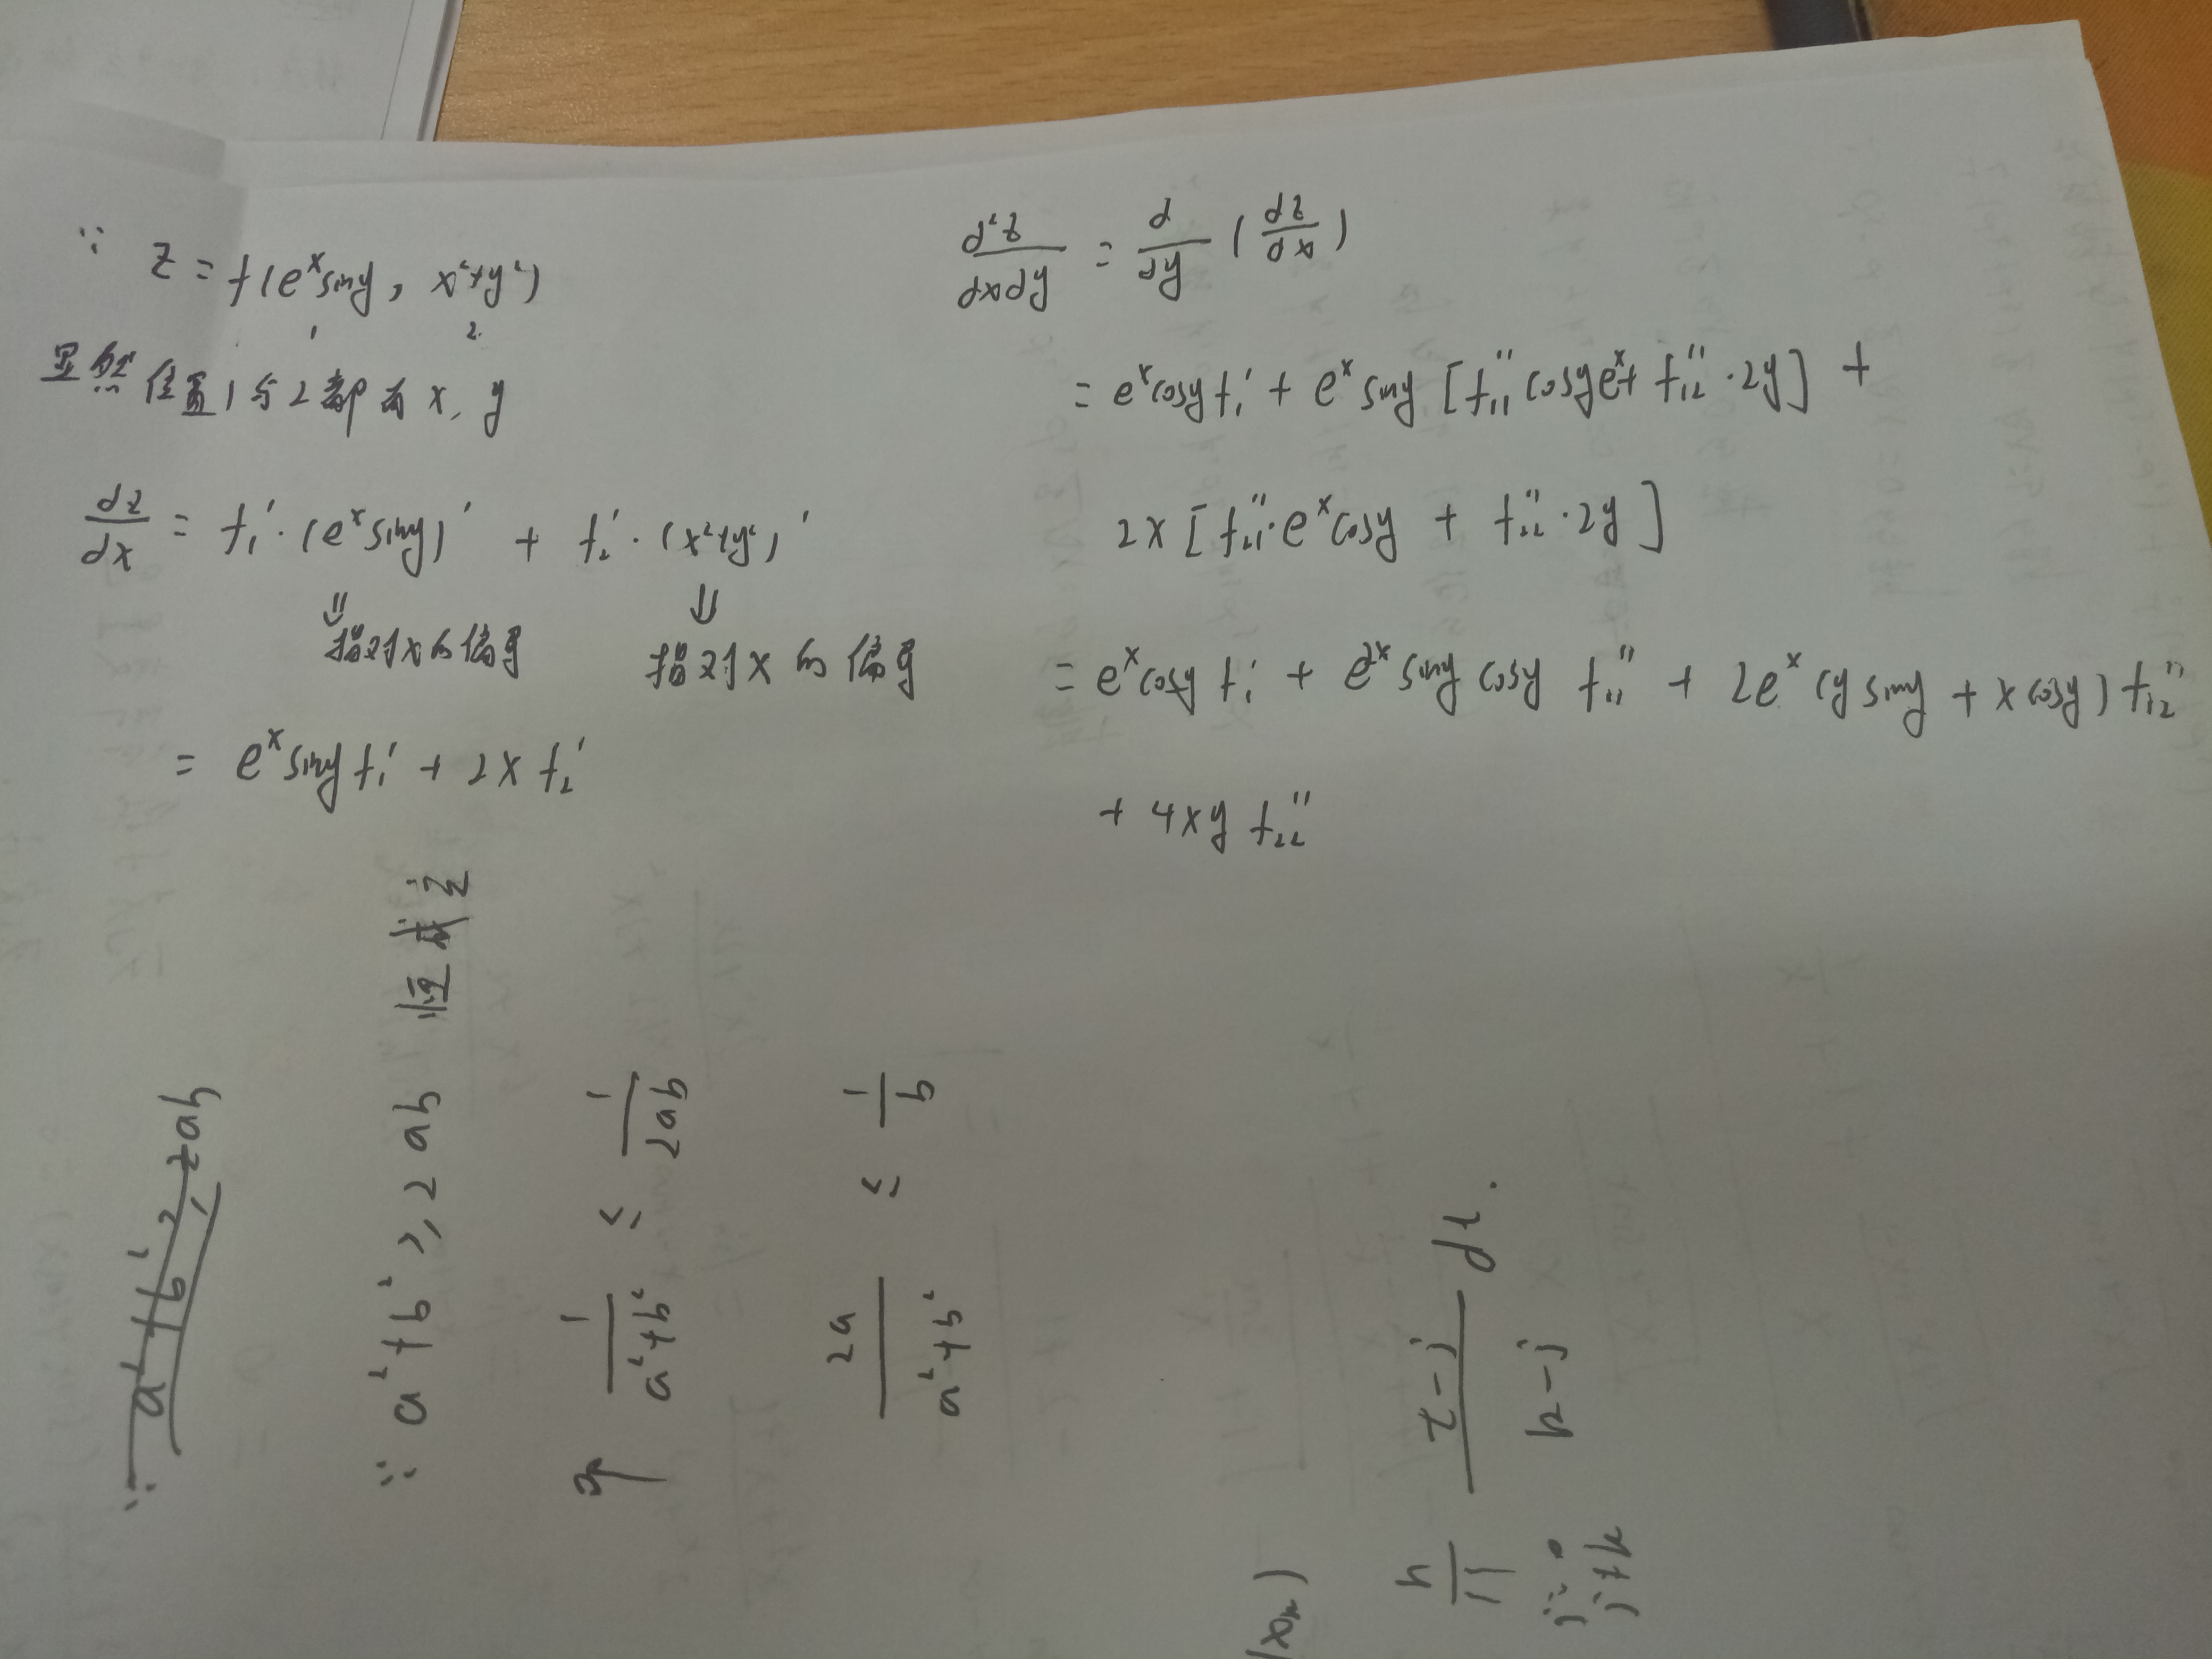 ∵ z = f(e^x siny, x²+y²)
1 2
显然 位置1与2都有x, y
dz/dx = f₁′·(e^x siny)′ + f₂′·(x²+y²)′
⇓ ⇓
指对x的偏导 指对x的偏导
= e^x siny f₁′ + 2x f₂′
d²z/dxdy = d/dy (dz/dx)
= e^x cosy f₁′ + e^x siny [f₁₁″ cosy e^x + f₁₂″·2y] +
2x [f₂₁″·e^x cosy + f₂₂″·2y]
= e^x cosy f₁′ + e^2x siny cosy f₁₁″ + 2e^x (y siny + x cosy) f₁₂″
+ 4xy f₂₂″
∵ a²+b² ≥ 2ab
∵ a²+b² ≥ 2ab 恒成立
1/(a²+b²) ≤ 1/2ab
2a/(a²+b²) ≤ 1/b
(xₖ)
n ∏ j=0 j≠k (t-j)/(k-j) dt.